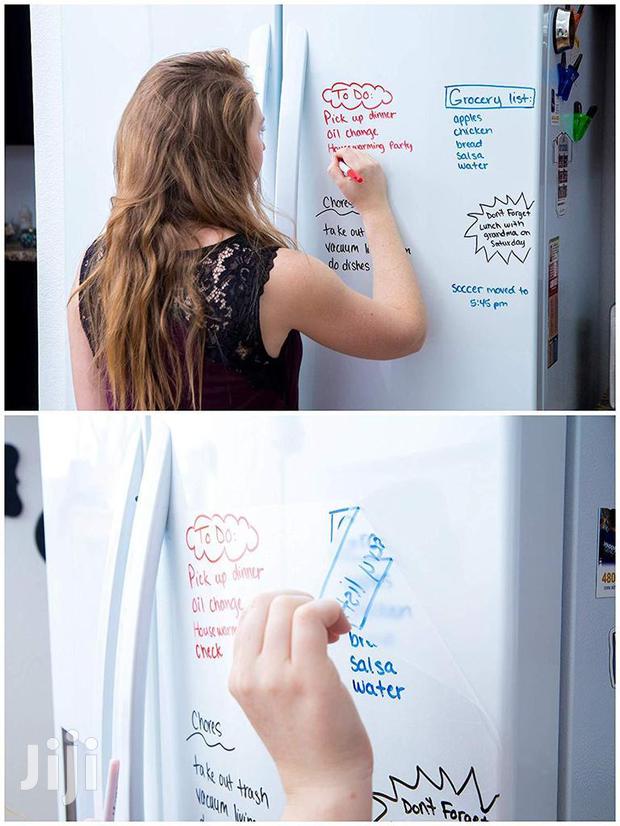 To Do:
Pick up dinner
Oil change
Housewarming Party
Chores
take out
vacuum
do dishes
Grocery list:
apples
chicken
bread
salsa
water
Don't Forget
Lunch with
grandma on
Saturday
Soccer moved to
5:45 pm
To Do:
Pick up dinner
Oil change
Housewarm
check
list
salsa
water
Chores
take out trash
vacuum living
Don't Forget
480
Jiji